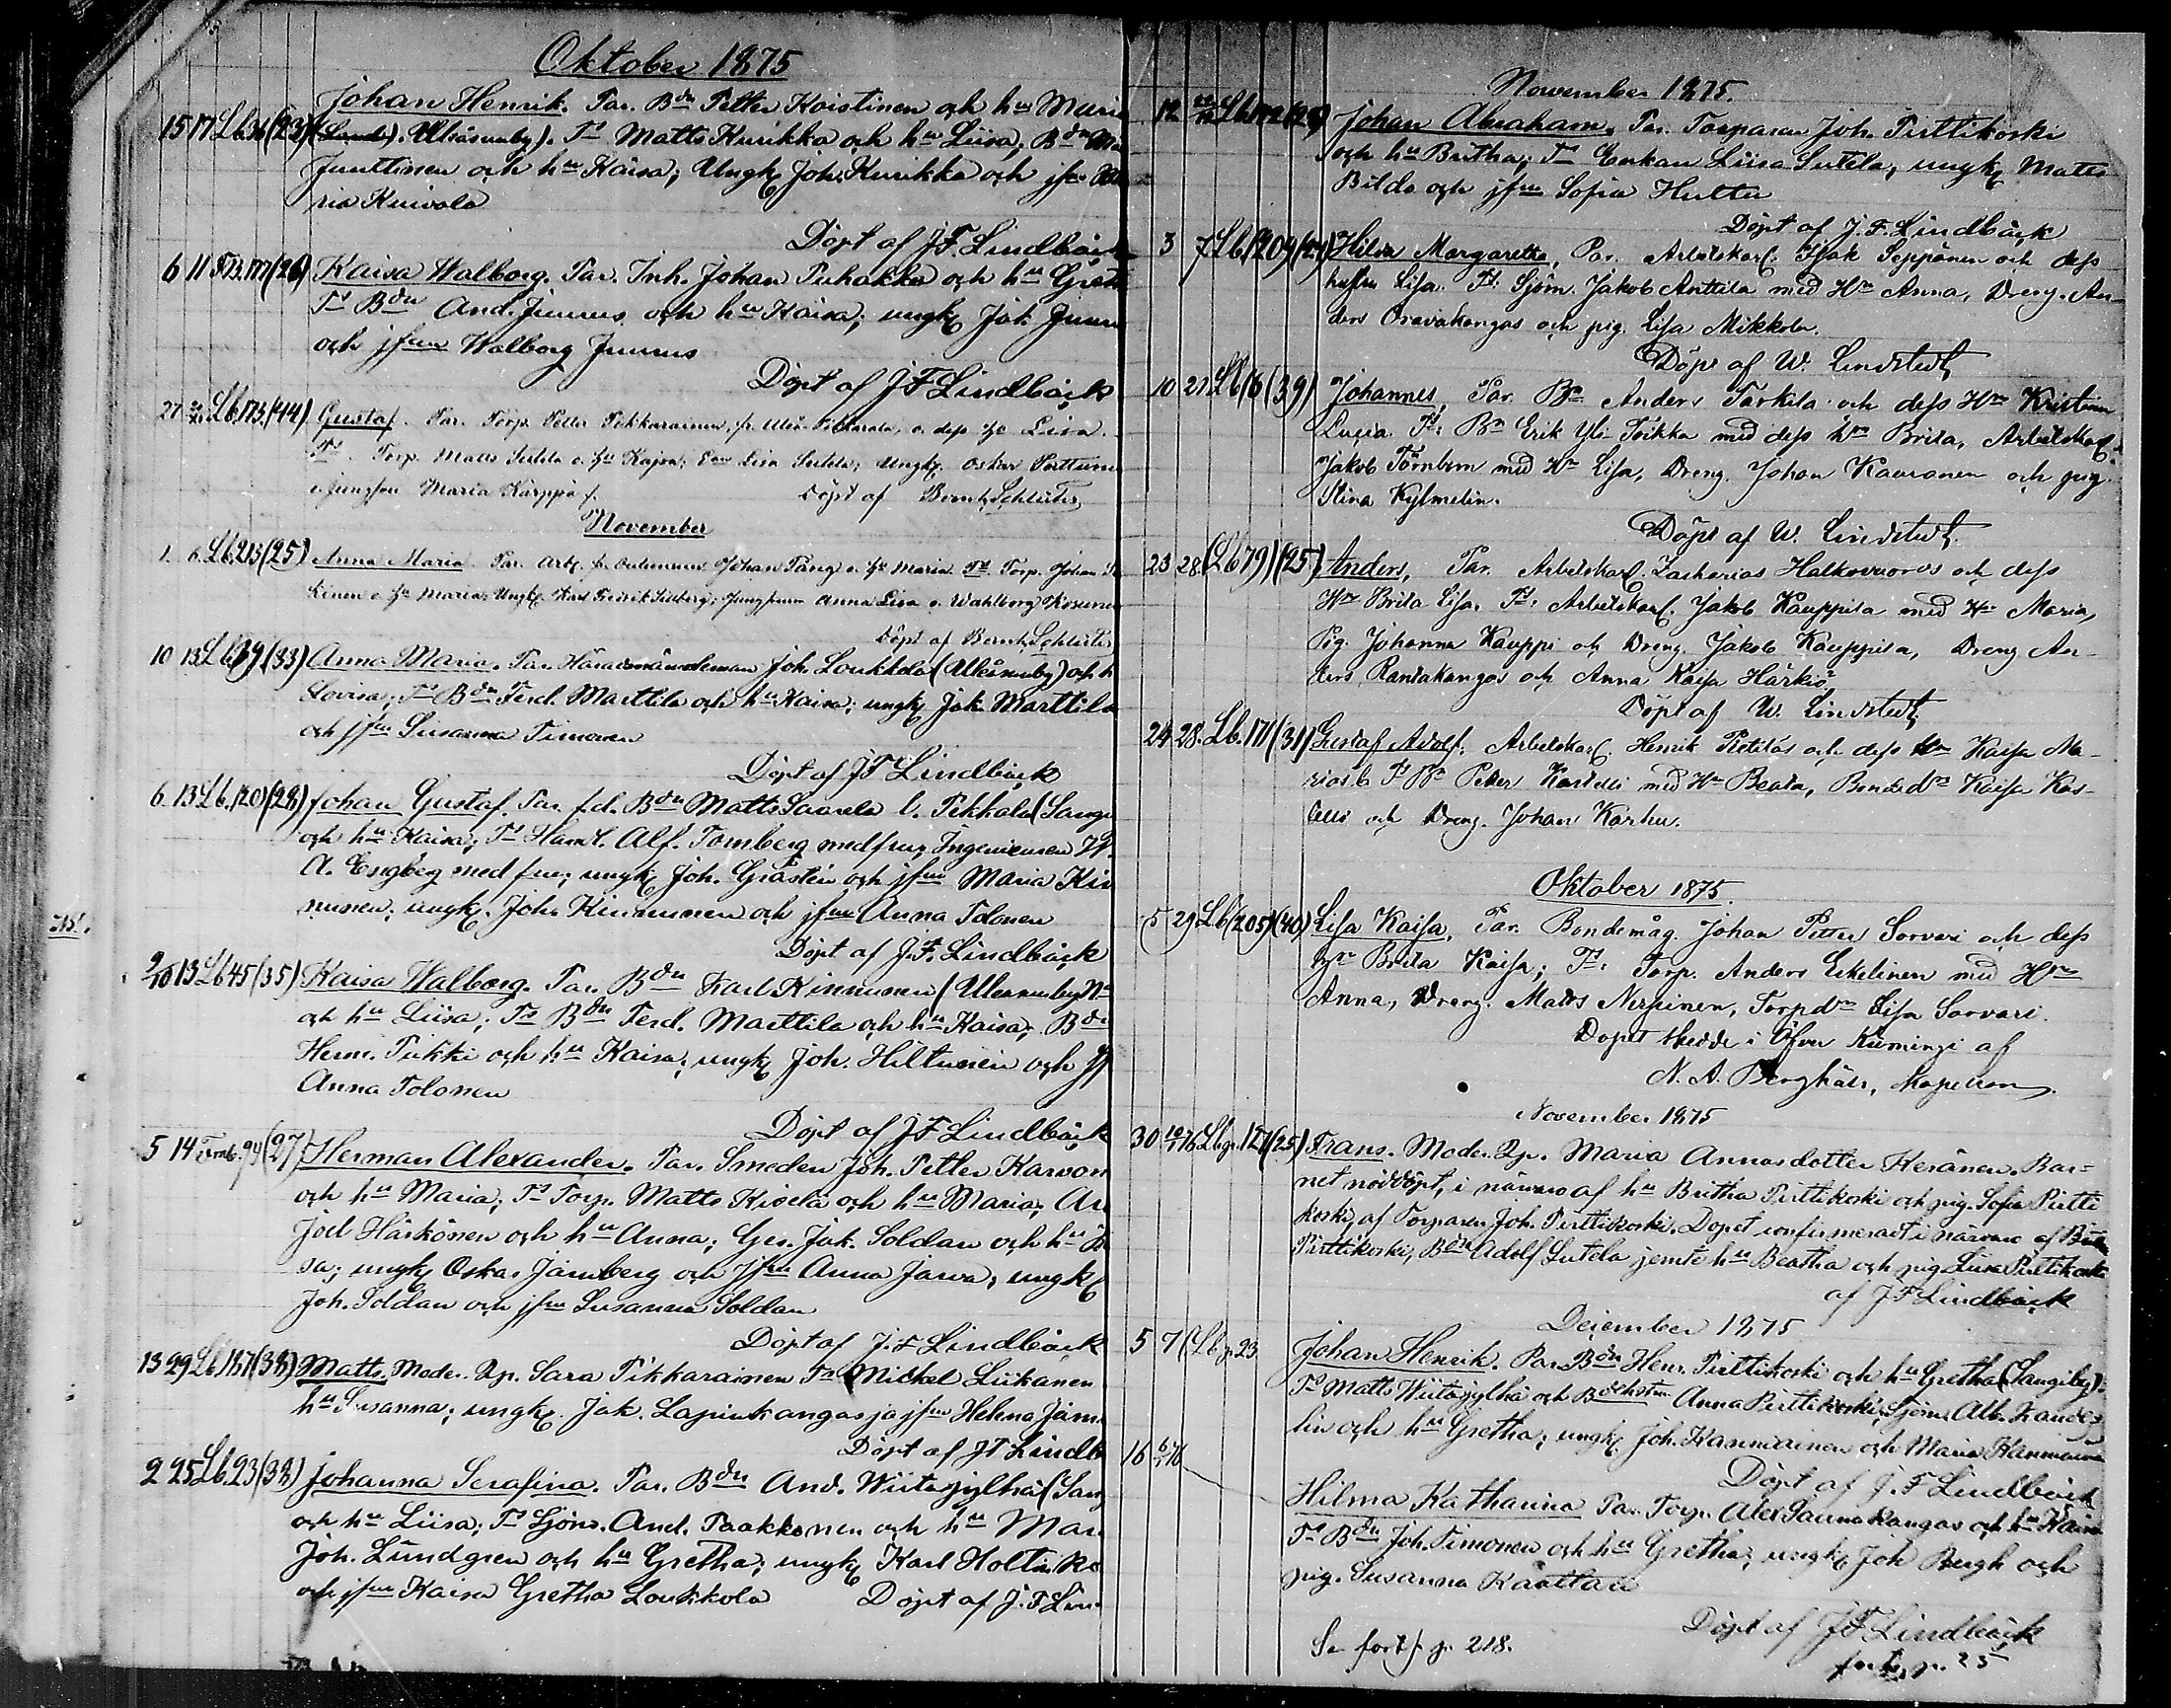 Oktober 1875
Johan Henrik. Par. Bdn Petter Koistinen och hu Maria
15 17 Lb. 36 (23) Uleåsuuby). Ts Matts Kurikka och hu Liisa; Bdn
Junttinen och hu Kaisa; Ungk Joh. Kurikka och jfru
ria Kuivala
Döpt af J. F. Lindbäck
6 11 177 (26) Kaisa Walborg. Par. Inh. Johan Puhakka och hu Greta
Ts Bdn And. Junnus och hu Kaisa; ungk Joh. Junn
och jfrun Walborg Junnus
Döpt af J F Lindbäck
27 Lb 173. (44) Gustaf. Par. Torp. Petter Pikkarainen, o. dess Liisa.
Ts. Torp. Matts Sutela o. hu Kajsa; Enk Lisa Sutela; Ungk. Oskar
o. jungfru Maria Karppa
Döpt af Bernh. Schlüter
November
1. 6. Lb. 213 (25) Anna Maria. Par. Arb. Johan Pång o. hu Maria. Ts. Torp. Johan
kinen o. hu Maria; Ungk. Karl Fredrik Jungfrurna Anna Lisa o. Wahlborg
Döpt af Bernh. Schlüter
10 13 Lb 79 (33) Anna Maria. Par. Joh. Loukkola (Uleåsuuby) och h
Lovisa; Ts Bdn Ferd. Marttila och hu Kaisa; ungk Jak Marttila
och jfrun Susanna Timonen
Döpt af J F Lindbäck
6 13 Lb. 120 (28) Johan Gustaf. Par. f.d. Bdn Matts Saarela l. Pekkala (Sangi
och hu Kaisa; Ts Handl. Alf. Tornberg med fru; Ingenieuren W.
A. Engberg med fru; ungk Joh. Gråsten och jfrun Maria Kin
nunen; ungk. Joh. Kinnunen och jfrun Anna Tolonen
Döpt af J. F. Lindbäck
9/10 13 Lb 45 (35) Kaisa Walborg. Par. Bdn Karl Kinnunen (Uleåsuuby
och hu Liisa; Ts Bdn Ferd. Marttila och hu Kaisa; Bdn
Henr. Pikki och hu Kaisa; ungk Joh. Hiltunen och jf
Anna Tolonen
Döpt af J F Lindbäck
5 14 94 (27) Herman Alexander. Par. Smeden Joh. Petter Karvon
och hu Maria; Ts Torp. Matts Kisela och hu Maria; Ar
Joel Härkönen och hu Anna; Ges. Jak. Soldan och hu
sa; ungk Oskar Jarnberg och jfrun Anna Jarva; ungk
Joh. Soldan och jfrun Susanna Soldan
Döpt af J. F Lindbäck
13 29 Lb 187 (38) Matts. Mod. Qp. Sara Pikkarainen Ts Mickel Liikanen
hu Susanna; ungk Jak. Lapinkangas ja jfrun Helena
Döpt af J F Lindb
2 25 Lb. 23 (38) Johanna Serafina. Par. Bdn And. Wiitasjylhä (Sang
och hu Liisa; Ts Sjöm. And. Paakkonen och hu Mar
Joh. Lundgren och hu Gretha; ungk Karl
och jfrun Kaisa Gretha Loukkola Döpt af J. F Lin
November 1875.
12 Lb 172 (28) Johan Abraham. Par. Torparen Joh. Pirttikoski
och hu Britha; Ts Enkan Liisa Sutela; ungk Matts
Bilda och jfrun Sofia Hutta
Döpt af J. F. Lindbäck
3 7 Lb 209 (29) Hilda Margaretha, Par. Arbetskarl. Isak Seppänen och dess
hustru Lisa. Ts. Sjöm. Jakob Anttila med Hu Anna, Dreng. An-
ders Oravakangas och pig. Lisa Mikkola.
Döpt af W. Lindstedt
10 21 Lb 6 (39) Johannes, Par. Bn Anders Tarkila och dess Hu Kristina
Lucia. Ts: Bn Erik Yli Toikka med dess hu Brita, Arbetskarl
Jakob Törnbom med Hu Lisa, Dreng. Johan Kauranen och pig.
Stina Kylmelin.
Döpt af W. Lindstedt
23 28 (Lb 79) (25) Anders, Par. Arbetskarl. Zacharias Halkovaara och dess
Hu Brita Lisa. Ts: Arbetskarl. Jakob Kauppila med Hu Maria,
Pig. Johanna Kauppi och Dreng. Jakob Kauppila, Dreng An-
ders Rantakangas och Anna Kajsa Härkiö
Döpt af W. Lindstedt
24 28. Lb. 171 (31) Gustaf Adolf. Arbetskarl. Henrik Pietilä och dess Hu Kajsa Ma-
ria Ts Bn Peter Kastelli med Hu Beata, Bonded. Kajsa Kas-
telli och Dreng. Johan Karhu.
Oktober 1875.
5 29 Lb (205) (40) Lisa Kajsa, Par. Bondemåg Johan Petter Sorvari och dess
Hu Brita Kajsa; Ts: Torp. Anders Eskelinen med Hu
Anna, Dreng. Mats Nirpinen, Torpd. Lisa Sorvari.
Dopet skedde i Öfver Kiiminge af
N. A. Berghäll, Kapellan.
November 1875
30 10/1 76 Lb p. 127 (25) Frans. Moder. Qp. Maria Annasdotter Keränen. Bar=
net nöddöpt, i närvaro af hu Britha Pirttikoski och pig. Sofia Pirtti
koski af Torparen Joh. Pirttikoski. Dopet confirmerat i närvaro af
Pirttikoski, Bdn Adolf Sutela jemte hu Beatha och pig Liisa Pirttikoski
af J F Lindbäck
December 1875
5 7 (Lb p. 23 Johan Henrik. Par. Bdn Henr. Pirttikoski och hu Gretha (Sangiby).
Ts Matts Wiitasjylhä och Anna Pirttikoski; Sjöm. Alb. Zande
lin och hu Gretha; ungk Joh. Kanniainen och Maria Kanniainen
Döpt af J. F Lindbäck
16 6/1 76 Hilma Katharina Par. Torp. Alex Saunakangas och hu Kaisa
Ts Bdn Joh. Timonen och hu Gretha; ungk Joh Bergh och
pig. Susanna Kaattari
Döpt af J F Lindbäck
Se forts. p. 218.
forts. p. 25